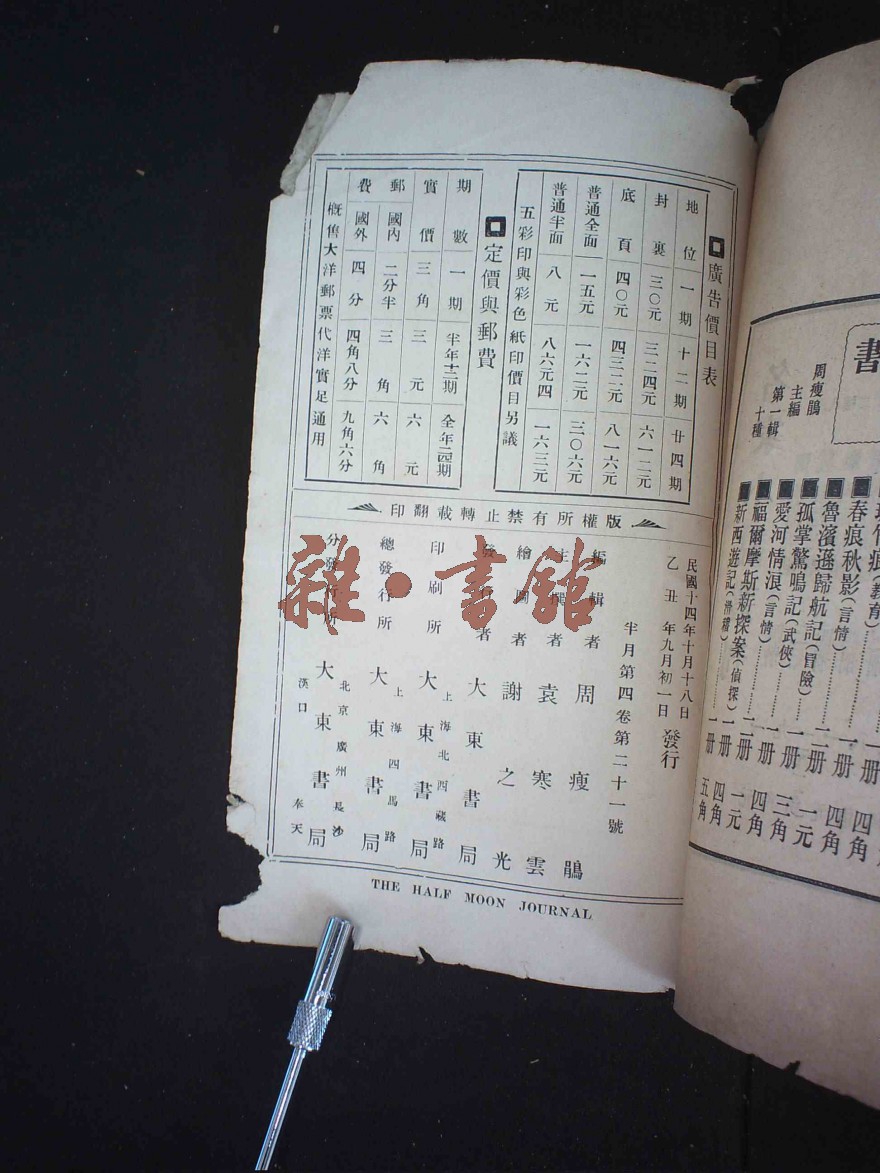 廣告價目表
地位 一期 十二期 廿四期
封裏 三〇元 三二四元 六一二元
底頁 四〇元 四三二元 八一六元
普通全面 一五元 一六二元 三〇六元
普通半面 八元 八六元四 一六三元
五彩印與彩色紙印價目另議
定價與郵費
期數 一期 半年十二期 全年二四期
實價 三角 三元 六元
郵費 國內 二分半 三角 六角
國外 四分 四角八分 九角六分
概售大洋郵票代洋實足通用
版權所有禁止轉載翻印
民國十四年十月十八日
乙丑年九月初一日
發行
半月第四卷第二十一號
編輯者 周瘦鵑
主撰者 袁寒雲
繪圖者 謝之光
發行者 大東書局
印刷所 上海北西藏路 大東書局
總發行所 上海四馬路 大東書局
分發行所 北京 廣州 長沙 漢口 奉天 大東書局
THE HALF MOON JOURNAL
雜·書館
書
周瘦鵑
主編
第一輯
十種
春痕秋影(言情)
魯濱遜歸航記(冒險) 一册 四角
孤掌驚鳴記(武俠) 二册 一元
愛河情淚(言情) 一册 三角
福爾摩斯新探案(偵探)
新西遊記(滑稽) 一册 五角